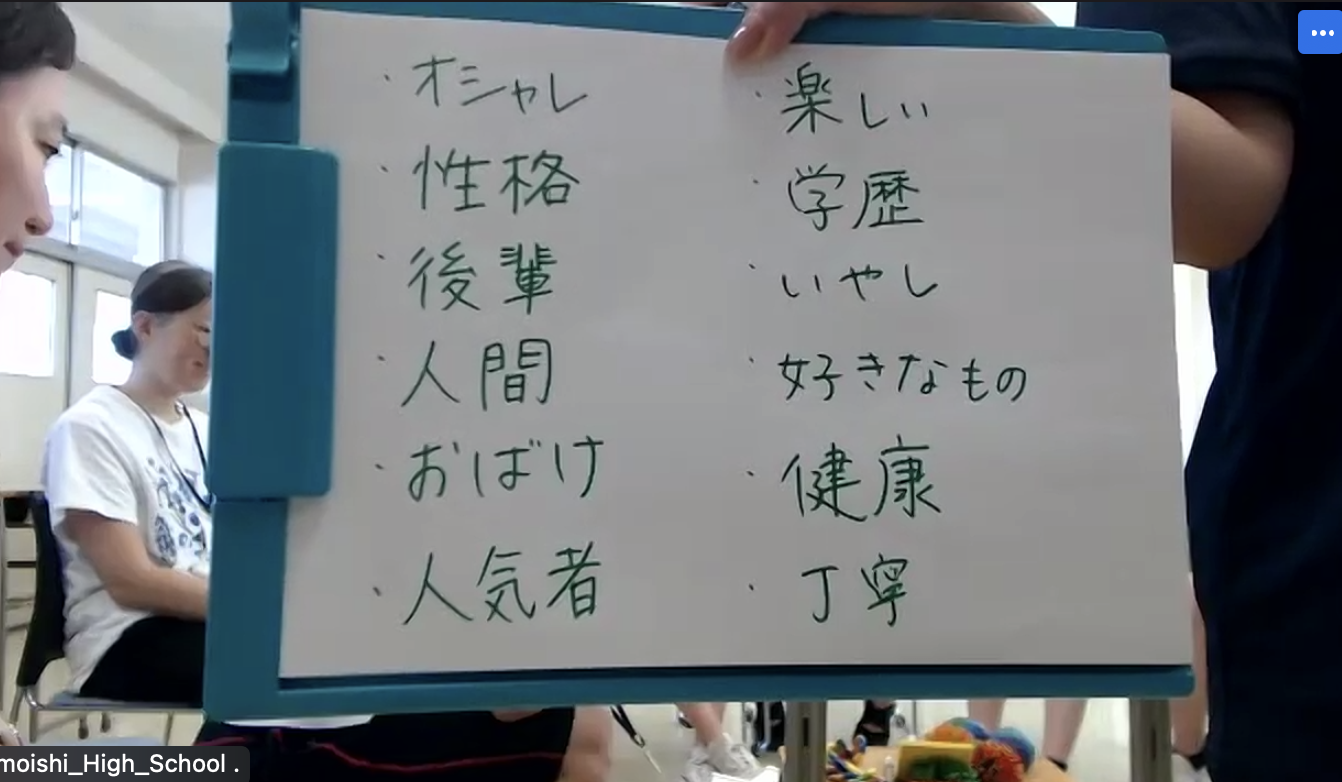 ・オシャレ
・性格
・後輩
・人間
・おばけ
・人気者
・楽しい
・学歴
・いやし
・好きなもの
・健康
・丁寧
moishi_High_School .